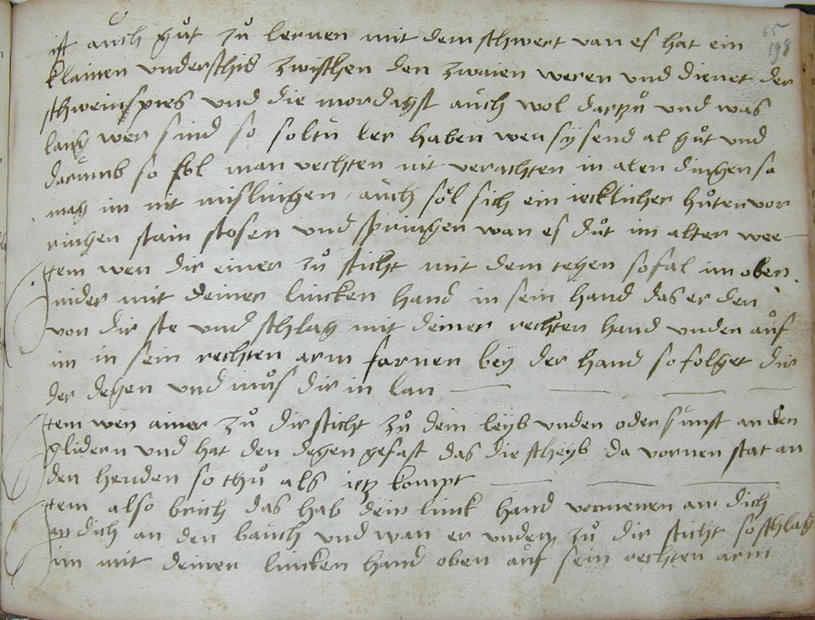 65
198
ist auch gůt zů lernen mit dem schwert van es hat ein
klainen underschid zwischen den zwaien weren und dienet der
schweinspies und die mordagst auch wol dartzů und was
lang wer sind so soltu ler haben wen sy send al gůt und
darumb so sol man vechten nit verachten in alen dingen so
mag im nit mislingen auch sol sich ein iecklicher hůten vor
ringen stain stosen und springen wan es důt im alter wee
Item wen dir einer zů sticht mit dem tegen so fal im oben
nider mit deiner lincken hand in sein hand das er den
von dir ste und schlag mit deiner rechten hand unden auf
im in sein rechten arm farnen bey der hand so folget dir
der degen und můs dir in lan
Item wen ainer zů dir sticht zů dem leyb unden oder sunst an den
glidern und hat den degen gefast das die scheyb da vornen stat an
den henden so thů als ietz kompt
Item also brich das hab dein linck hand vornenen an dich
an dich an den bauch und wan er unden zů dir sticht so schlag
im mit deiner lincken hand oben auf sein rechten arm